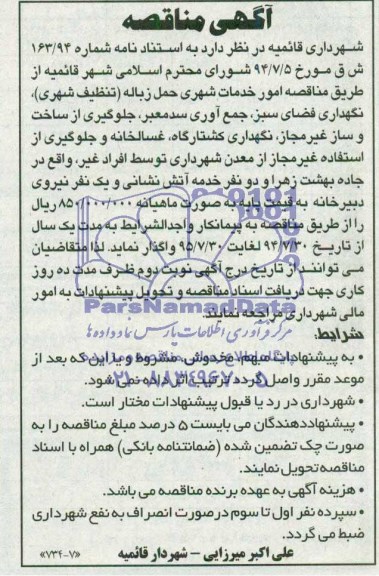 آگهی مناقصه
شهرداری قائمیه در نظر دارد به استناد نامه شماره ۱۶۳/۹۴
ش ق مورخ ۹۴/۷/۵ شورای محترم اسلامی شهر قائمیه از
طریق مناقصه امور خدمات شهری حمل زباله (تنظیف شهری)،
نگهداری فضای سبز، جمع آوری سدمعبر، جلوگیری از ساخت
و ساز غیرمجاز، نگهداری کشتارگاه، غسالخانه و جلوگیری از
استفاده غیرمجاز از معدن شهرداری توسط افراد غیر، واقع در
جاده بهشت زهرا و دو نفر خدمه آتش نشانی و یک نفر نیروی
دبیرخانه به قیمت پایه به صورت ماهیانه ۸۵۰/۰۰۰/۰۰۰ ریال
را از طریق مناقصه به پیمانکار واجدالشرایط به مدت یک سال
از تاریخ ۹۴/۷/۳۰ لغایت ۹۵/۷/۳۰ واگذار نماید. لذا متقاضیان
می توانند از تاریخ درج آگهی نوبت دوم ظرف مدت ده روز
کاری جهت دریافت اسناد مناقصه و تحویل پیشنهادات به امور
مالی شهرداری مراجعه نمایند.
ParsNamadData
مرکز فرآوری اطلاعات پارس نماد داده ها
شرایط:
• به پیشنهادات مبهم، مخدوش، مشروط و یا این که بعد از
موعد مقرر واصل گردد ترتیب اثر داده نمی شود.
• شهرداری در رد یا قبول پیشنهادات مختار است.
• پیشنهاددهندگان می بایست ۵ درصد مبلغ مناقصه را به
صورت چک تضمین شده (ضمانتنامه بانکی) همراه با اسناد
مناقصه تحویل نمایند.
• هزینه آگهی به عهده برنده مناقصه می باشد.
• سپرده نفر اول تا سوم در صورت انصراف به نفع شهرداری
ضبط می گردد.
علی اکبر میرزایی – شهردار قائمیه
«۷۳۴-۷»